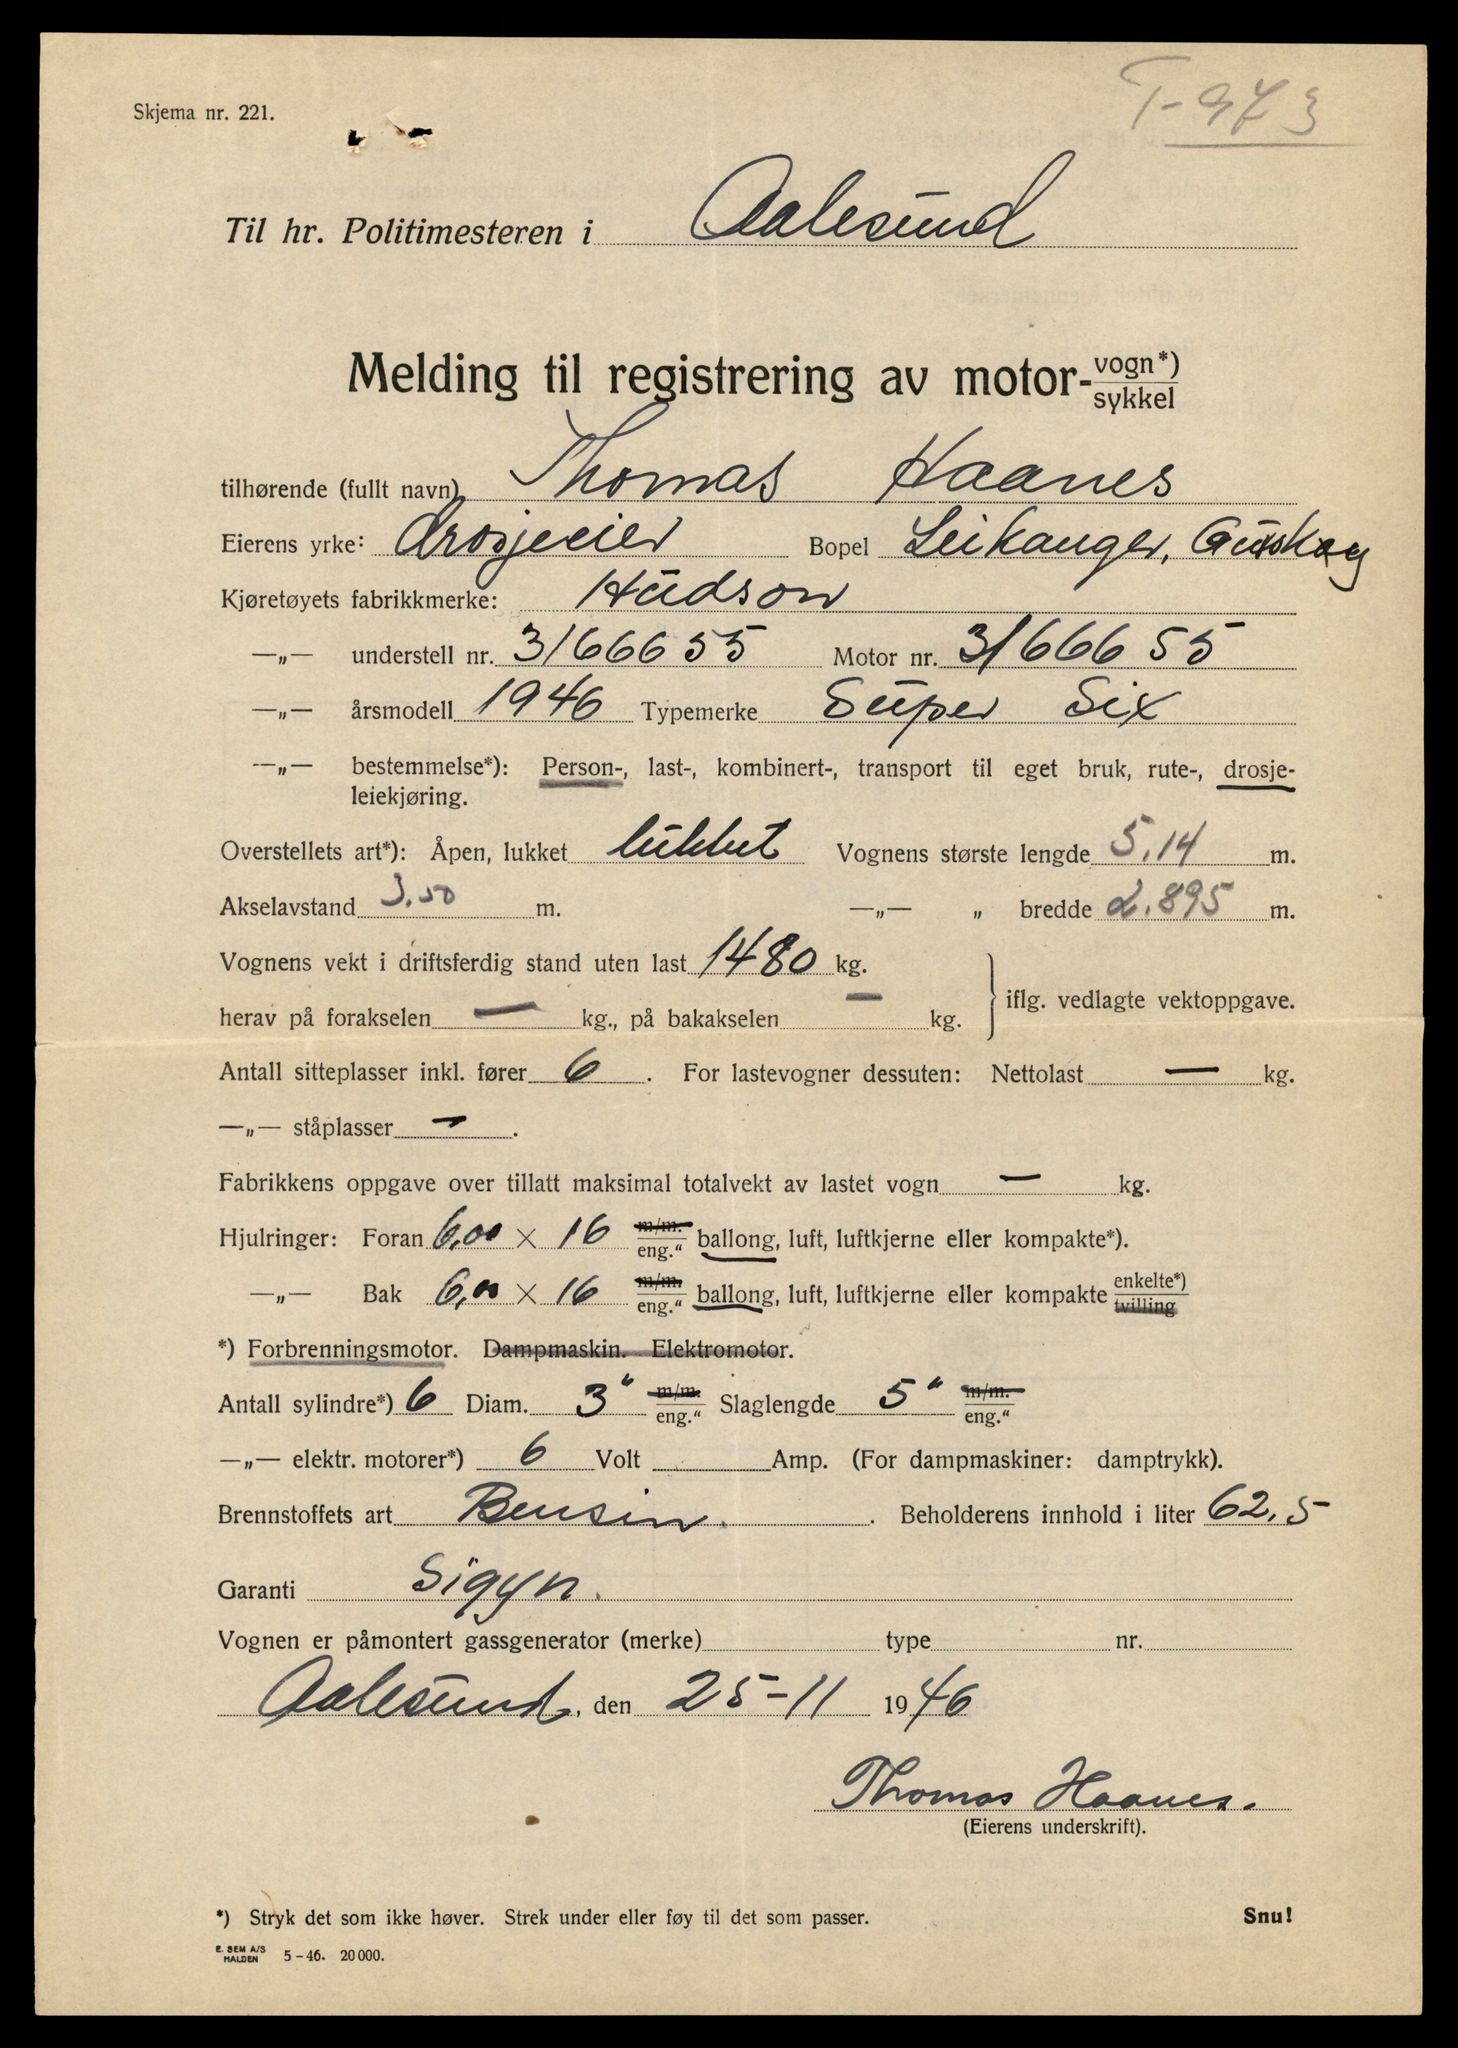 Skjema nr. 221.
T-973
Til hr. Politimesteren i Aalesund
Melding til registrering av motor- vogn*) sykkel
tilhørende (fullt navn) Thomas Haanes
Eierens yrke: drosjeeier Bopel Leikanger, Gurskøy
Kjøretøyets fabrikkmerke: Hudson
—„— understell nr. 3166655 Motor nr. 3166655
—„— årsmodell 1946 Typemerke Super Six
—„— bestemmelse*): Person-, last-, kombinert-, transport til eget bruk, rute-, drosje-
leiekjøring.
Overstellets art*): Åpen, lukket lukket Vognens største lengde 5,14 m.
Akselavstand 3.50 m. —„— „ bredde 2.895 m.
Vognens vekt i driftsferdig stand uten last 1480 kg.
herav på forakselen — kg., på bakakselen — kg. iflg. vedlagte vektoppgave.
Antall sitteplasser inkl. fører 6 . For lastevogner dessuten: Nettolast — kg.
—„— ståplasser — .
Fabrikkens oppgave over tillatt maksimal totalvekt av lastet vogn — kg.
Hjulringer: Foran 6,00 × 16 m/m. eng." ballong, luft, luftkjerne eller kompakte*).
—„— Bak 6,00 × 16 m/m. eng." ballong, luft, luftkjerne eller kompakte enkelte*) tvilling
*) Forbrenningsmotor. Dampmaskin. Elektromotor.
Antall sylindre*) 6 Diam. 3" m/m. eng." Slaglengde 5" m/m. eng."
—„— elektr. motorer*) 6 Volt Amp. (For dampmaskiner: damptrykk).
Brennstoffets art Bensin. . Beholderens innhold i liter 62,5
Garanti Sigyn.
Vognen er påmontert gassgenerator (merke) type nr.
Aalesund, den 25-11 1946
Thomas Haanes.
(Eierens underskrift).
*) Stryk det som ikke høver. Strek under eller føy til det som passer. Snu!
E. SEM A/S HALDEN 5-46. 20 000.